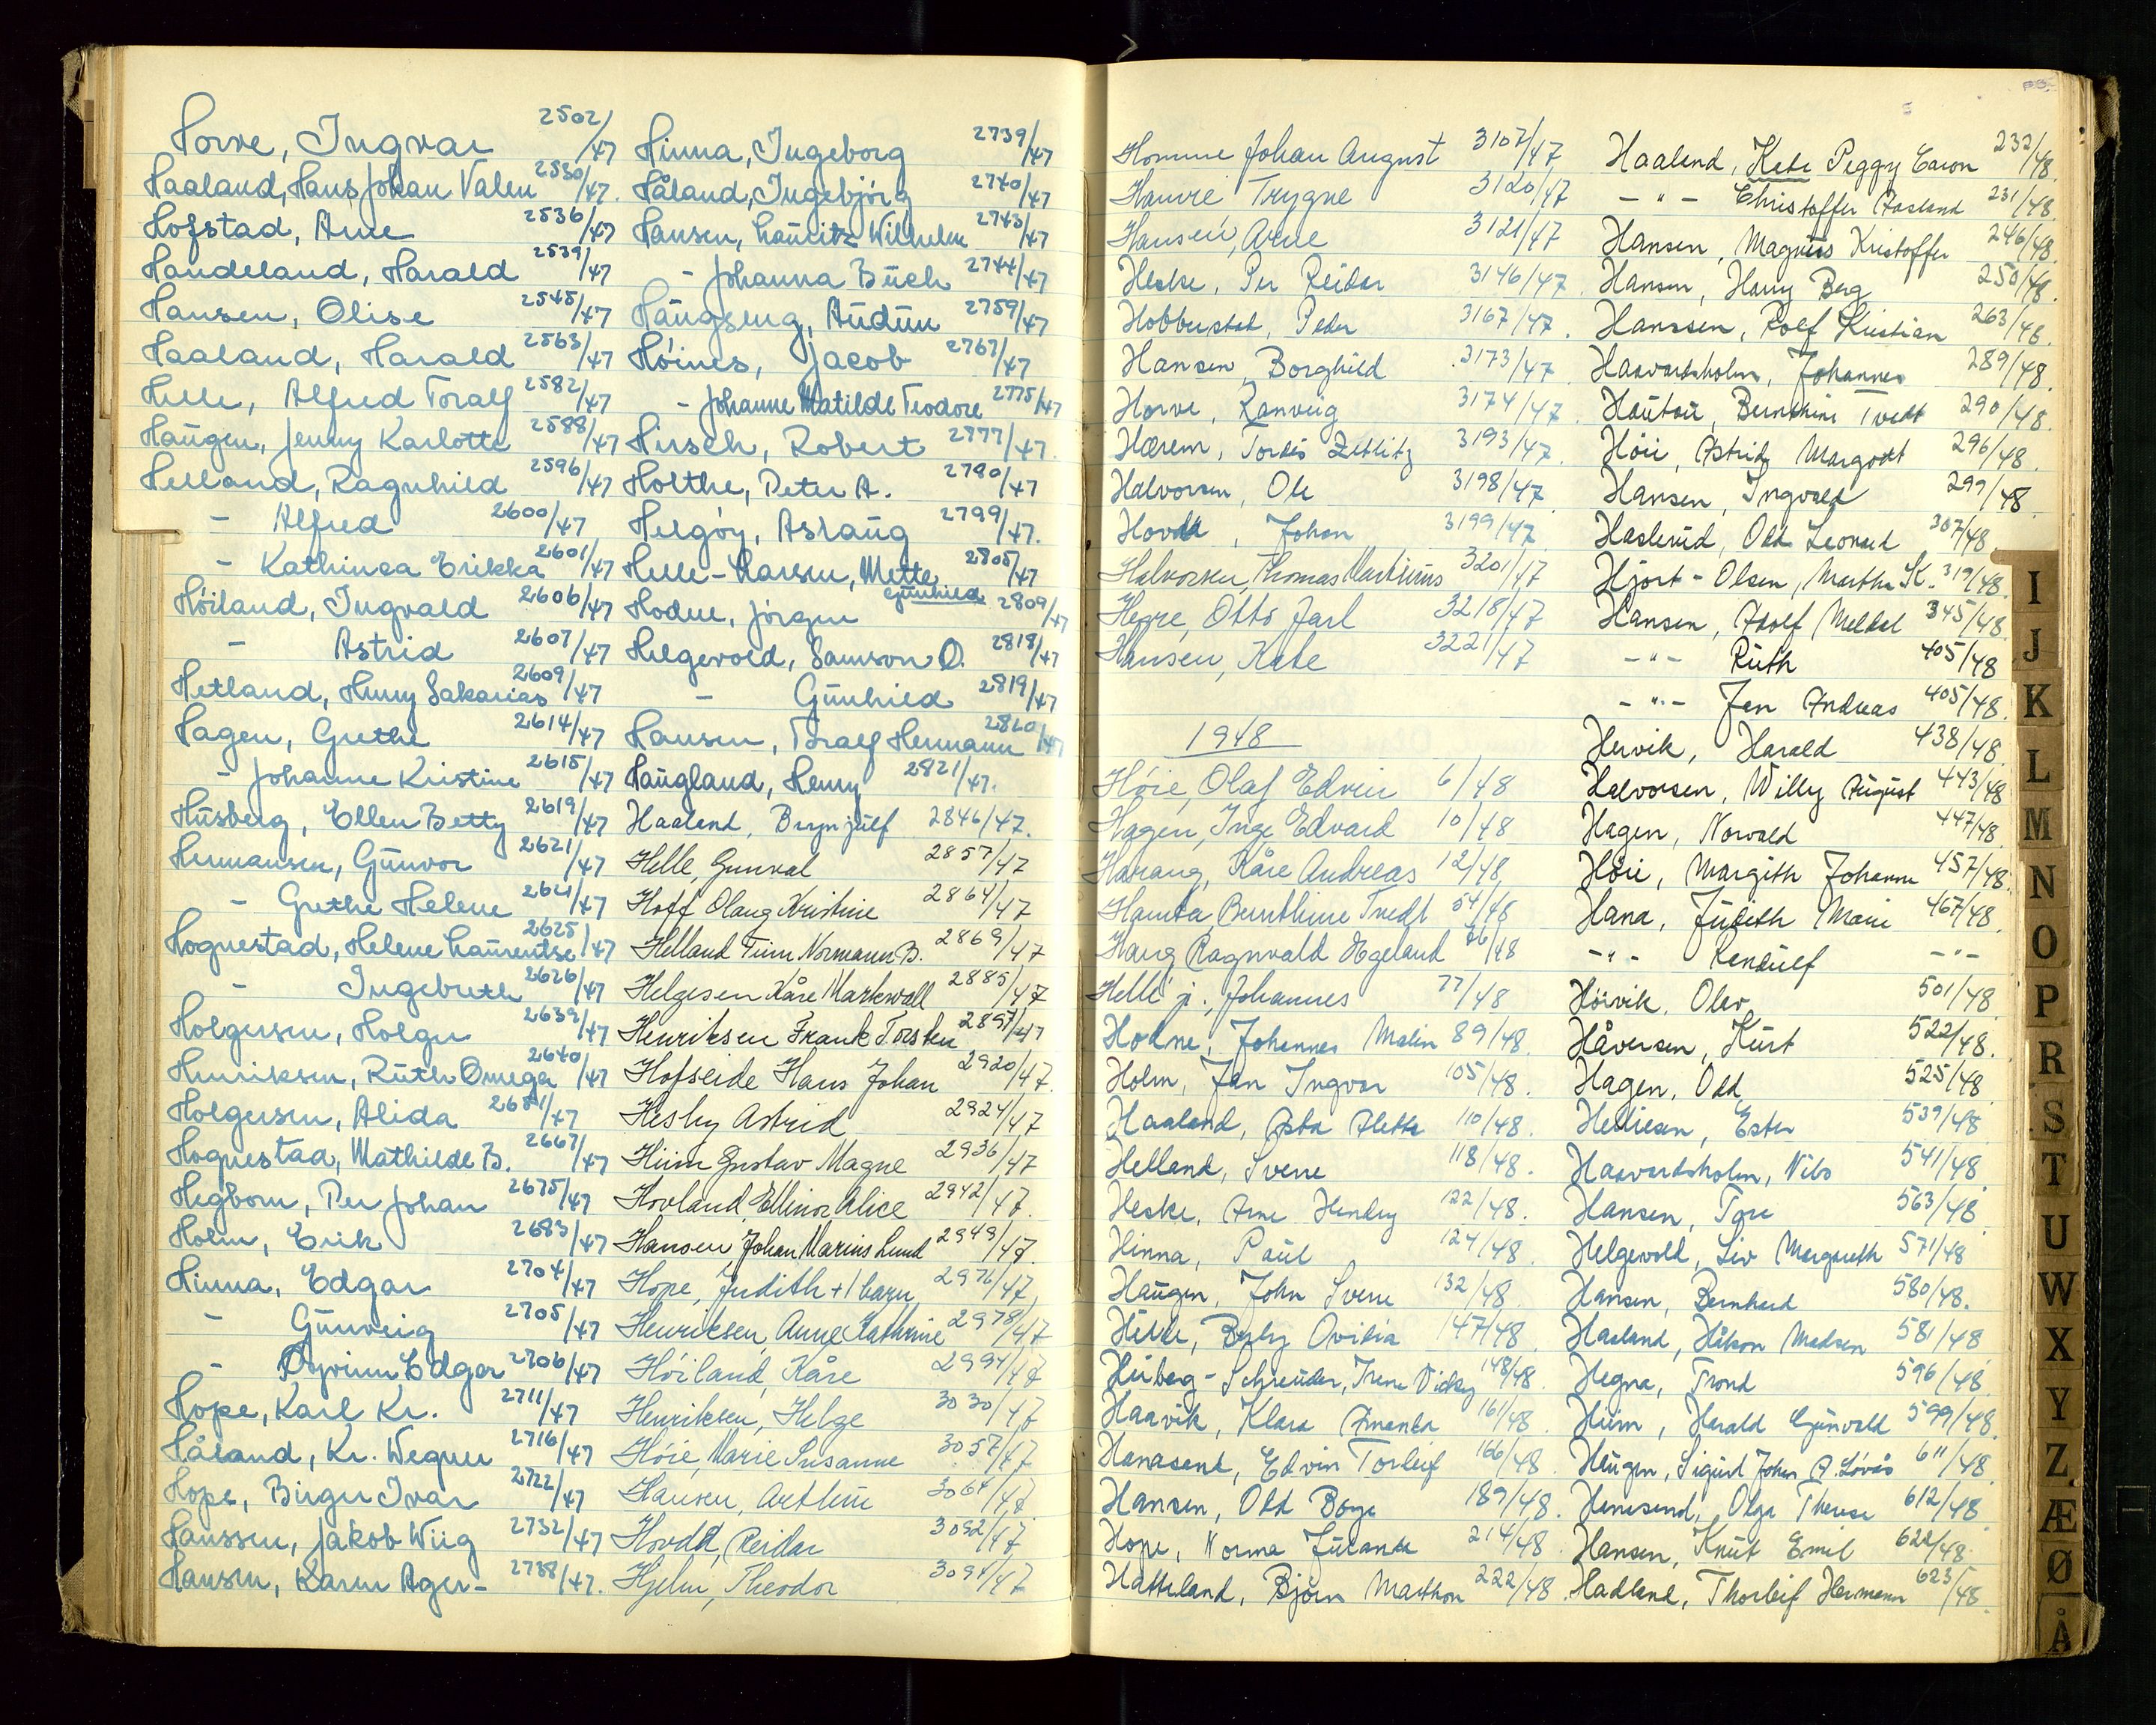 Horve, Ingvar 2502/47
Haaland, Hans Johan Valen 2530/47.
Hofstad, Arne 2536/47
Handeland, Harald 2539/47
Hansen, Olise 2545/47
Haaland, Harald 2563/47
Helle, Alfred Toralf 2582/47
Haugen, Jenny Karlotte 2588/47
Helland, Ragnhild 2596/47
- Alfred 2600/47
- Kathinca Erikka 2601/47
Höiland, Ingvald 2606/47
- Astrid 2607/47
Hetland, Henny Sakarias 2609/47
Hagen, Grethe 2614/47
- Johanne Kristine 2615/47
Husberg, Ellen Betty 2619/47
Hermansen, Gunvor 2621/47
- Grethe Helene 2621/47
Hognestad, Helene Laurentse 2625/47
- Ingebreth 2626/47
Holgersen, Holger 2639/47
Henriksen, Ruth Omega 2640/47
Holgersen, Alida /47
Hognestad, Mathilde B. 2667/47
Hegbom, Per Johan 2675/47
Holm, Erik 2683/47
Hinna, Edgar 2704/47
- Gunveig 2705/47
- Öyvinn Edgar 2706/47
Hope, Karl Kr. 2711/47
Håland, Kr. Wegner 2716/47
Hope, Birger Ivar 2722/47
Hanssen, Jakob Wiig 2732/47
Hansen, Karen Ager- 2738/47.
Hinna, Ingeborg 2739/47
Håland, Ingebjörg 2740/47
Hansen, Lauritz Wilhelm 2743/47
- Johanna Buch 2744/47
Haugseng, Audun 2759/47
Höines, Jacob 2767/47
- Johanne Matilde Teodore 2775/47
Hirsch, Robert 2777/47.
Holthe, Peter A. 2790/47
Helgöy, Aslaug 2799/47.
Helle-Larsen, Mette Gunhild 2805/47
Hodne, Jörgen 2809/47
Helgevold, Samson O. 2818/47
- Gunhild 2819/47
Hansen, Toralf Hermann 2820/47
Haugland, Henny 2821/47.
Haaland, Brynjulf 2846/47.
Helle, Gunval 2857/47
Hoff Olaug Kristine 2864/47
Helland Finn Normann B. 2869/47
Helgesen Kåre Markwall 2885/47
Henriksen Frank Torsten 2897/47
Hofseide Hans Johan 2920/47.
Hesby Astrid 2924/47
Hiim Gustav Magne 2936/47
Hovland Ellinor Alice 2942/47.
Hansen Johan Marius Lund 2949/47.
Hope, Judith + 1 barn 2976/47
Henriksen, Anne Kathrine 2978/47
Höiland, Kåre 2994/47
Henriksen, Helge 3030/47
Höie, Marie Susanne 3057/47
Hansen, Arthur 3064/47
Hovdd, Reidar 3092/47
Hjelm, Theodor 3094/47
Homme Johan August 3107/47
Hauvre Trygve 3120/47
Hansen, Arne 3121/47
Heske, Per Reidar 3146/47.
Hobberstad, Peder 3167/47.
Hansen, Borghild 3173/47
Horve, Ranveig 3174/47.
Hærem, Tordis Zetlitz 3193/47
Halvorsen, Ole 3198/47
Hovda, Johan 3199/47
Halvorsen, Thomas Martinius 3201/47
Herre, Otto Jarl 3218/47
Hansen, Kate 3221/47
1948
Höie, Olaf Edvin 6/48
Hagen, Inge Edvard 10/48
Harang, Kåre Andreas 12/48
Hauta, Bernthine Tvedt 54/48
Haug Ragnvald Egeland 76/48
Helle jr., Johannes 77/48
Hodne, Johannes Malin 89/48
Holm, Jan Ingvar 105/48.
Haaland, Asta Alette 110/48.
Helland, Sverre 118/48.
Heske, Arne Henley 122/48.
Hinna, Paul 124/48.
Haugen, John Sverre 132/48
Helle, Borly Ovidia 147/48
Heiberg-Schreuder, Irene Vicky 148/48.
Haavik, Klara Amanda 161/48
Hanasand, Edvin Torleif 166/48.
Hansen, Odd Börge 189/48.
Hope, Norma Juranda 214/48.
Hatteland, Björn Marthon 222/48.
Haaland, Kate Peggy Caron 232/48.
- " - Christoffer Aasland 231/48.
Hansen, Magnus Kristoffer 246/48.
Hansen, Harry Berg 250/48.
Hanssen, Rolf Kristian 263/48.
Haavardsholm, Johannes 289/48.
Hauta, Bernthine Tvedt 290/48.
Höie, Astrid Margodt 296/48.
Hansen, Ingvald 299/48
Haslerud, Odd Leonard 307/48
Hjort-Olsen, Martha K. 319/48.
Hansen, Adolf Meldal 345/48
- " - Ruth 405/48
- " - Jan Andreas 405/48.
Hervik, Harald 438/48
Halvorsen, Willy August 443/48
Hagen, Norvald 447/48.
Höie, Margith Johanne 457/48.
Hana, Judith Marie 467/48.
- " - Randulf - " -
Höivik, Olav 501/48
Håversen, Kurt 522/48.
Hagen, Odd 525/48
Helliesen, Ester 539/48
Haavardsholm, Nils 541/48
Hansen, Tore 563/48
Helgevold, Liv Margreth 571/48
Hansen, Bernhard 580/48.
Haaland, Håkon Madsen 581/48
Hegna, Trond 596/48
Hiim, Harald Gunvald 599/48.
Haugen, Sigurd Johan A. Lövås 611/48.
Hanasand, Olga Therese 612/48
Hansen, Knut Emil 622/48.
Hadland, Thorleif Hermann 623/48.
I
J
K
L
M
N
O
P
R
S
T
U
W
X
Y
Z
Æ
Ø
Å